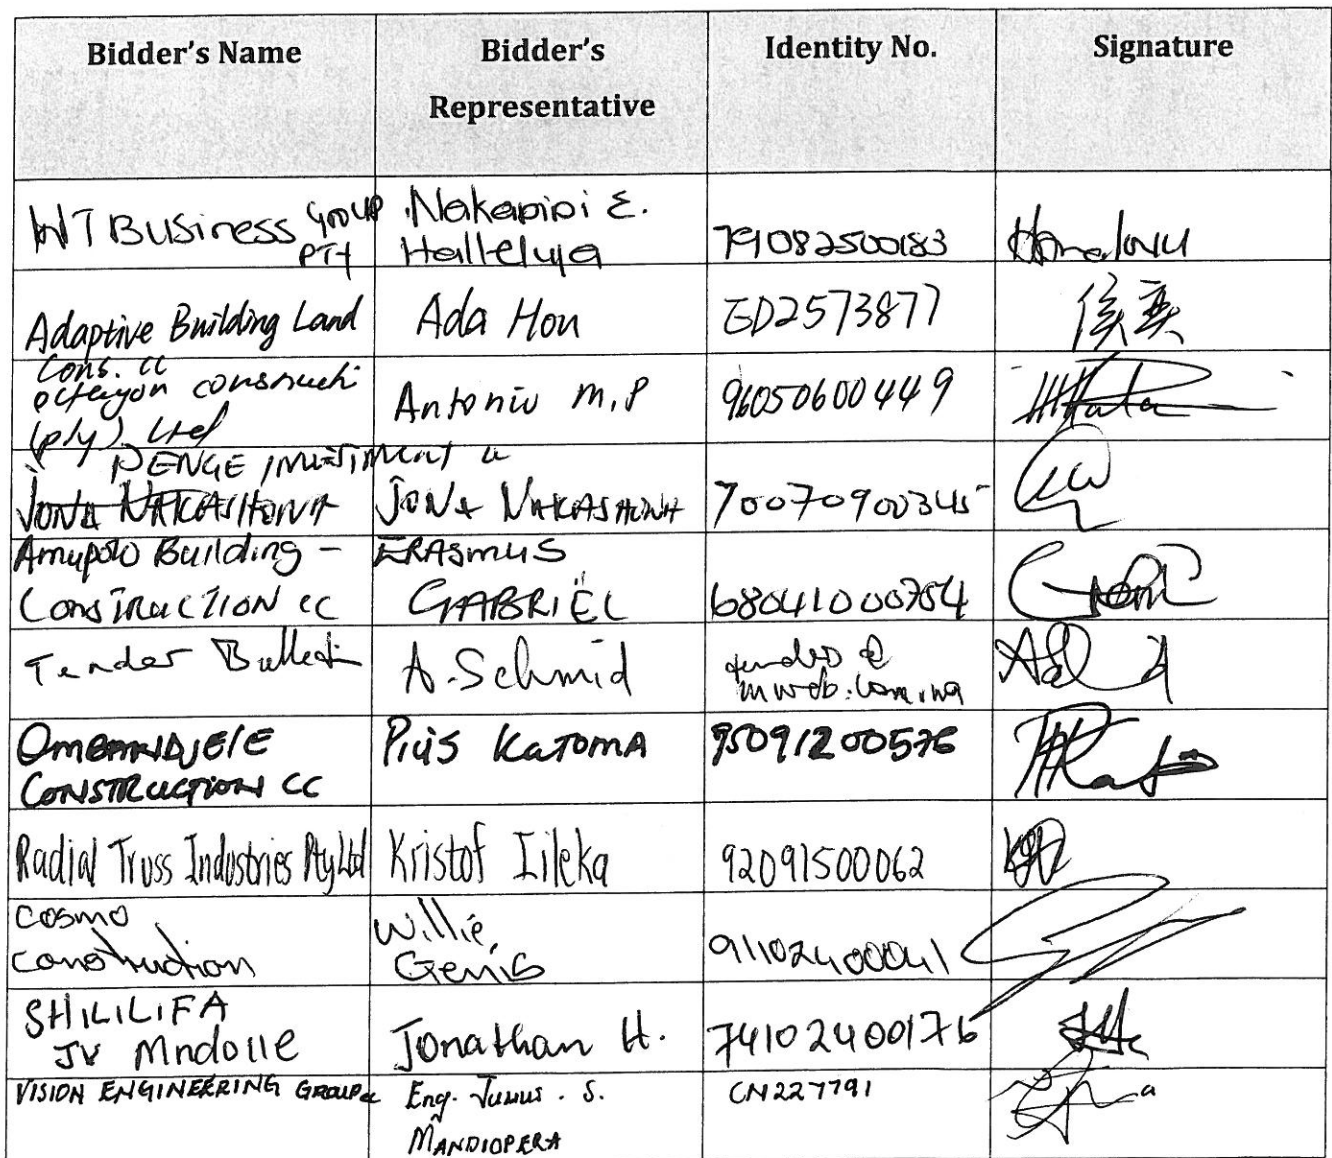 Bidder's Name Bidder's Representative Identity No. Signature
WT Business Group PTY Nakapipi E. Halleluya 79082500183
Adaptive Building Land Cons. cc Ada Hou ED2573877 侯爽
octagon constructi (pty) Ltd Antoniu M.P 96050600449
PENGE investment cc JONA NAKASHONA JONA NAKASHONA 70070900345
Amupolo Building - CONSTRUCTION cc ERASMUS GABRIËL 68041000754
Tender Bulletin A. Schmid tenders@ mweb.com.na
OMBANDJELE CONSTRUCTION CC Pius KATOMA 95091200576
Radial Truss Industries Pty Ltd Kristof Iileka 92091500062
Cosmo construction Willie Genis 91102400041
SHILILIFA JV Mndolle Jonathan H. 74102400176
VISION ENGINEERING GROUP cc Eng. Junus. S. MANDIOPERA CN227791